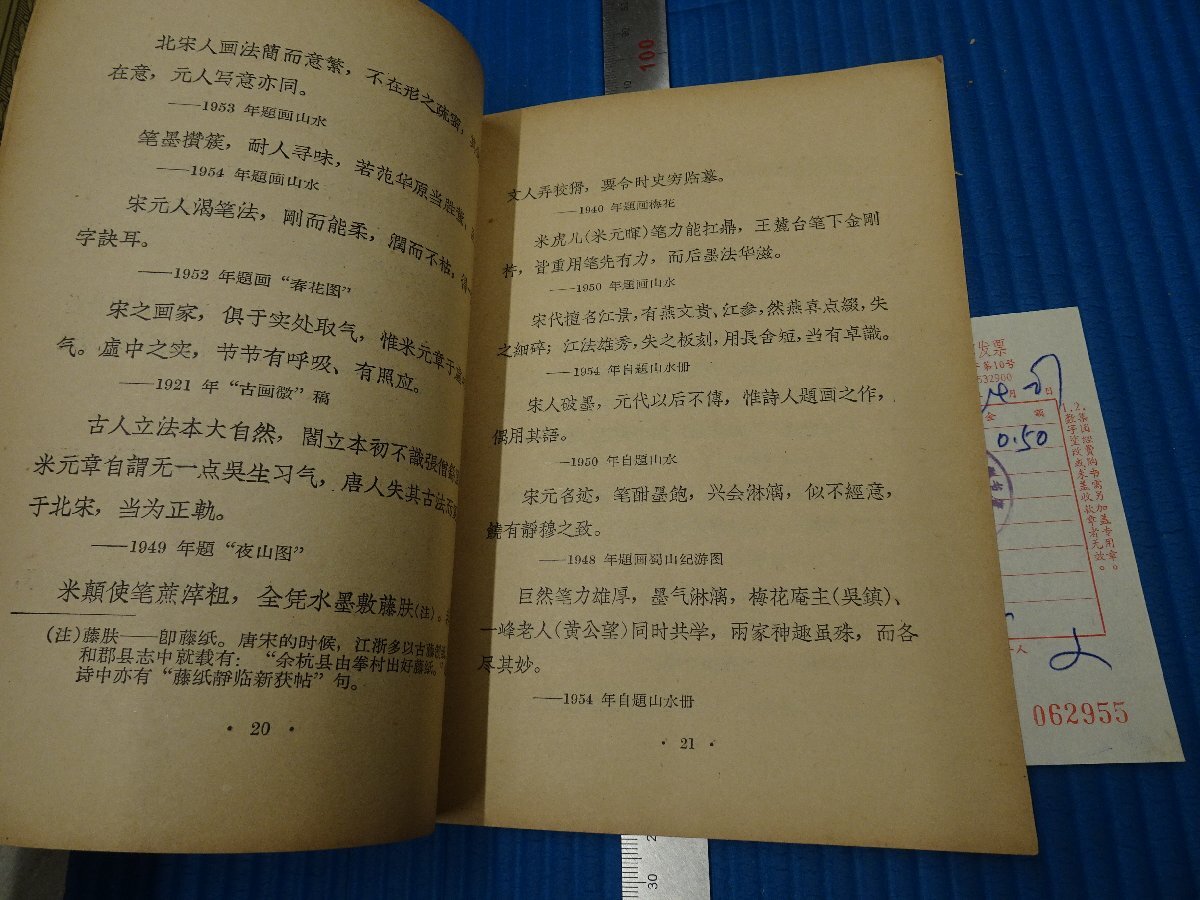 北宋人画法簡而意繁，不在形之疏密，
在意，元人写意亦同。
——1953 年題画山水
笔墨攢簇，耐人寻味，若范华原当胜
——1954 年題画山水
宋元人渴笔法，剛而能柔，潤而不枯，得
字訣耳。
——1952 年題画“春花图”
宋之画家，俱于实处取气，惟米元章于虛
气。虛中之实，节节有呼吸、有照应。
——1921 年“古画微”稿
古人立法本大自然，閻立本初不識張僧
米元章自謂无一点吳生习气，唐人失其古法而
于北宋，当为正軌。
——1949 年題“夜山图”
米顛使笔蔗滓粗，全凭水墨敷藤肤(注)。
(注)藤肤——卽藤纸。唐宋的时候，江浙多以古藤
和郡县志中就载有：“余杭县由拳村出好藤纸。
诗中亦有“藤纸靜临新获帖”句。
· 20 ·
文人弄狡獪，要令时史穷临摹。
——1940 年題画梅花
米虎儿(米元暉)笔力能扛鼎，王麓台笔下金剛
杵，皆重用笔先有力，而后墨法华滋。
——1950 年題画山水
宋代擅名江景，有燕文贵、江参，然燕喜点綴，失
之細碎；江法雄秀，失之板刻，用長舍短，当有卓識。
——1954 年自題山水册
宋人破墨，元代以后不傳，惟詩人題画之作，
偶用其語。
——1950 年自題山水
宋元名迹，笔酣墨飽，兴会淋漓，似不經意，
饒有靜穆之致。
——1948 年題画蜀山纪游图
巨然笔力雄厚，墨气淋漓，梅花庵主(吳鎮)、
一峰老人(黄公望)同时共学，兩家神趣虽殊，而各
尽其妙。
——1954 年自題山水册
· 21 ·
100
30
发票
第10号
532900
月 日
金 额
0.50
1.
2.
人
062955